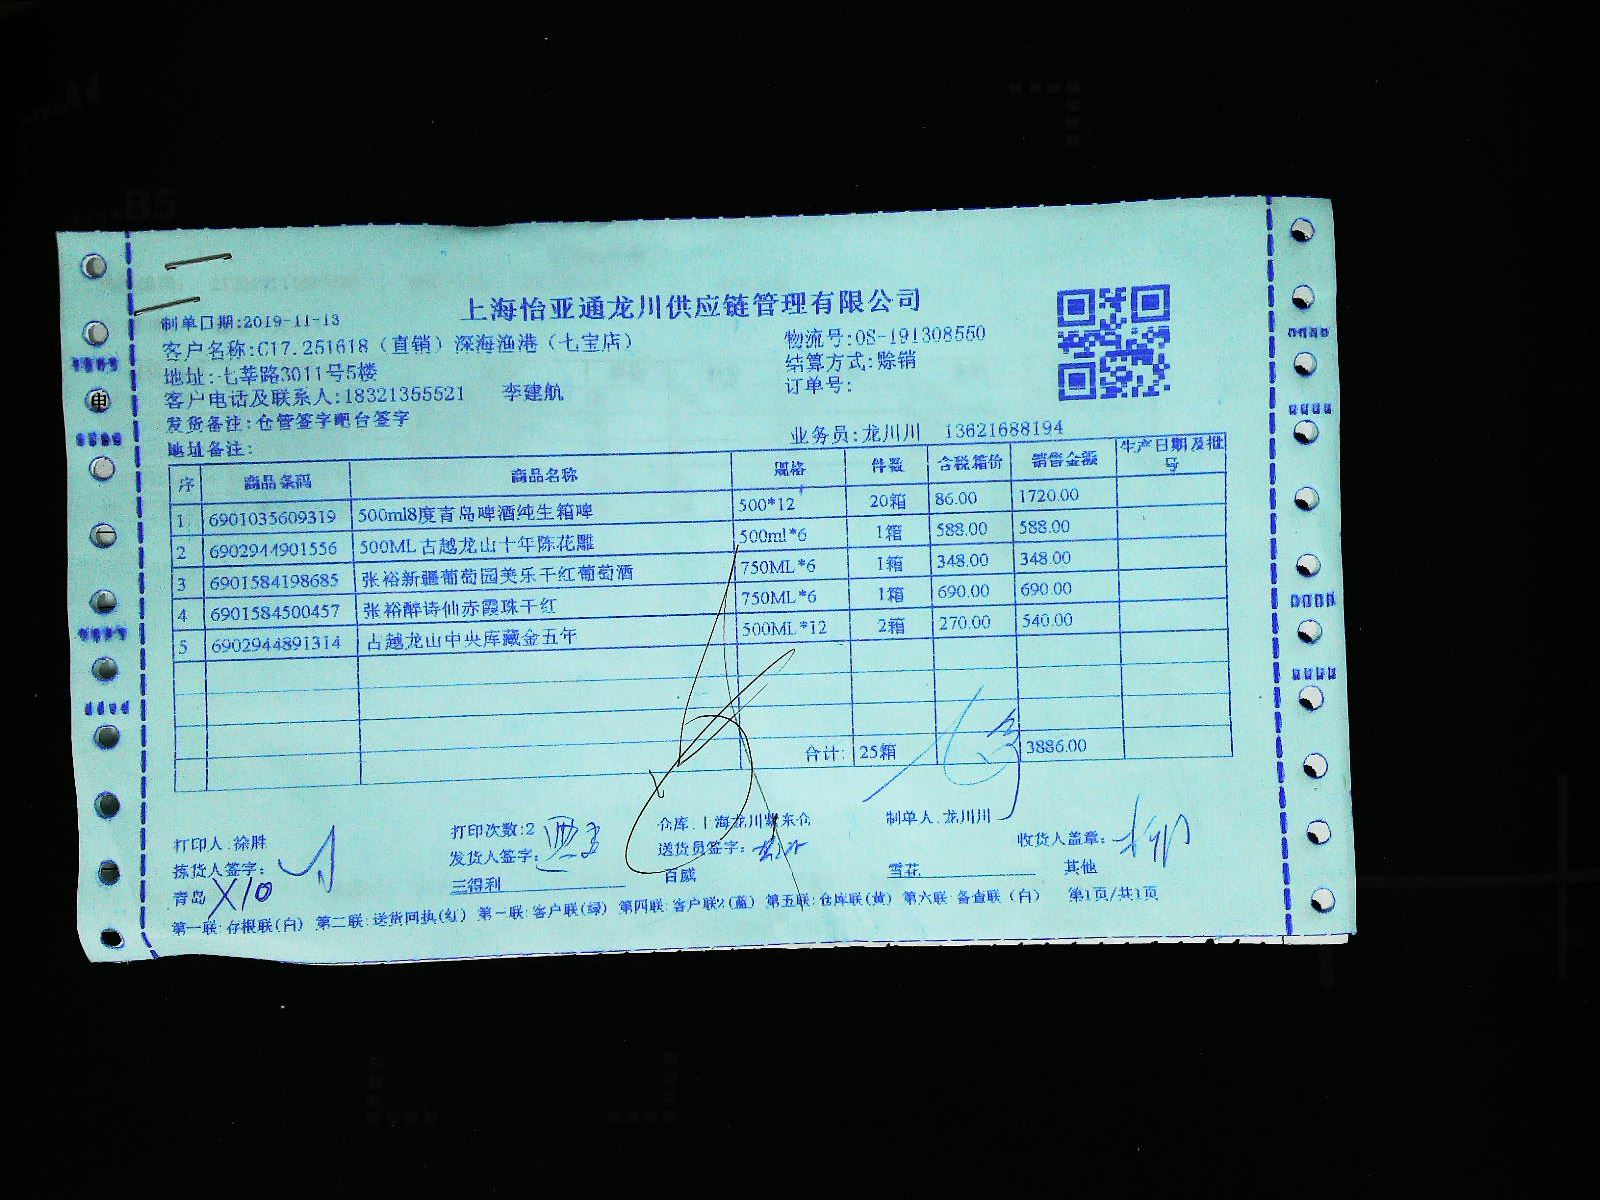 上海怡亚通龙川供应链管理有限公司
制单日期:2019-11-13
客户名称:C17.251618（直销）深海渔港（七宝店） 物流号:OS-191308550
地址:七莘路3011号5楼 结算方式:赊销
客户电话及联系人:18321355521 李建航 订单号:
发货备注:仓管签字吧台签字
地址备注: 业务员:龙川川 13621688194
序 商品条码 商品名称 规格 件数 含税箱价 销售金额 生产日期及批号
1 6901035609319 500ml8度青岛啤酒纯生箱啤 500*12 20箱 86.00 1720.00
2 6902944901556 500ML古越龙山十年陈花雕 500ml*6 1箱 588.00 588.00
3 6901584198685 张裕新疆葡萄园美乐干红葡萄酒 750ML*6 1箱 348.00 348.00
4 6901584500457 张裕醉诗仙赤霞珠干红 750ML*6 1箱 690.00 690.00
5 6902944891314 古越龙山中央库藏金五年 500ML*12 2箱 270.00 540.00
合计: 25箱 3886.00
打印人:徐胜 打印次数:2 仓库:上海龙川 东仓 制单人:龙川川 收货人盖章:
拣货人签字: 发货人签字: 送货员签字:
青岛 X10 三得利 百威 雪花 其他
第一联:存根联(白) 第二联:送货回执(红) 第一联:客户联(绿) 第四联:客户联2(蓝) 第五联:仓库联(黄) 第六联 备查联（白） 第1页/共1页